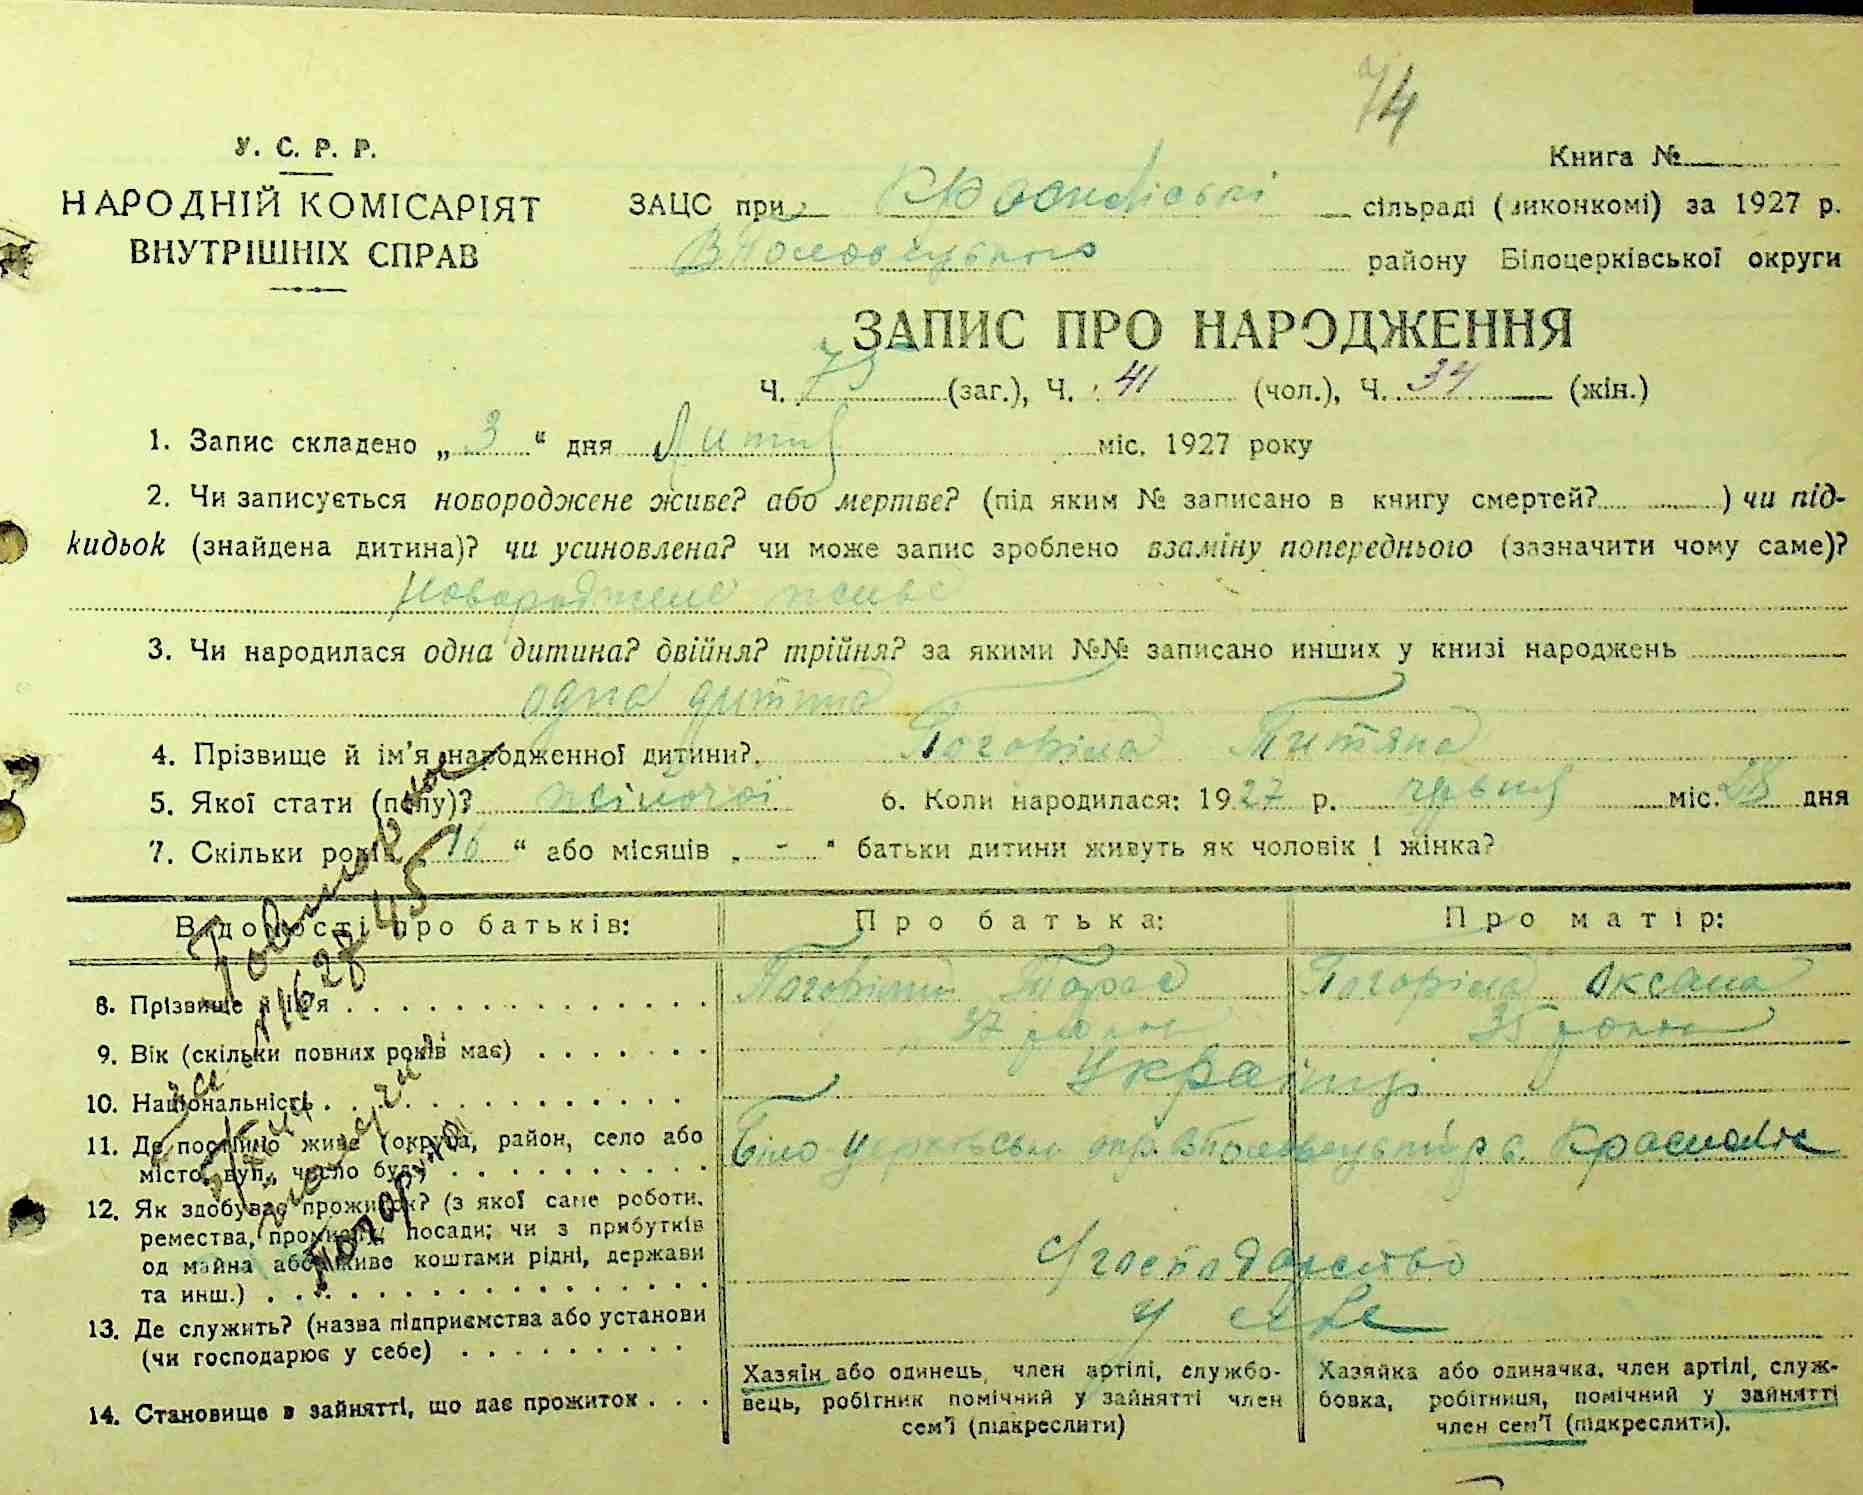 74
У. С. Р. Р.
Книга №
НАРОДНІЙ КОМІСАРІЯТ
ВНУТРІШНІХ СПРАВ
ЗАЦС при сільраді (виконкомі) за 1927 р.
району Білоцерківської округи
ЗАПИС ПРО НАРОДЖЕННЯ
Ч. 75 (заг.), Ч. 41 (чол.), Ч. 34 (жін.)
1. Запис складено „ 3 “ дня Липня міс. 1927 року
2. Чи записується новороджене живе? або мертве? (під яким № записано в книгу смертей? ) чи під-
кидьок (знайдена дитина)? чи усиновлена? чи може запис зроблено взаміну попереднього (зазначити чому саме)?
новороджене живе
3. Чи народилася одна дитина? двійня? трійня? за якими №№ записано инших у книзі народжень
одна дитина
4. Прізвище й ім'я народженної дитини? Погоріла Титяна
5. Якої стати (полу)? жіночої 6. Коли народилася: 1927 р. червня міс. 28 дня
7. Скільки років „ 16 “ або місяців „ - “ батьки дитини живуть як чоловік і жінка?
Відомості про батьків: Про батька: Про матір:
8. Прізвище й ім'я Погорілий Тарас Погоріла Оксана
9. Вік (скільки повних років має) 37 років 35 років
10. Національність Українці
11. Де постійно живе (округа, район, село або
місто, вул., число буд.) Біло Церковськ окр. с. Краснолісе
12. Як здобуває прожиток? (з якої саме роботи,
ремества, промислу, посади; чи з прибутків
од майна або живе коштами рідні, держави
та инш.) с/господарство
13. Де служить? (назва підприємства або установи
(чи господарює у себе) У себе
14. Становище в зайнятті, що дає прожиток
Хазяїн або одинець, член артілі, службо-
вець, робітник помічний у зайнятті член
сем'ї (підкреслити)
Хазяйка або одиначка, член артілі, служ-
бовка, робітниця, помічний у зайнятті
член сем'ї (підкреслити).